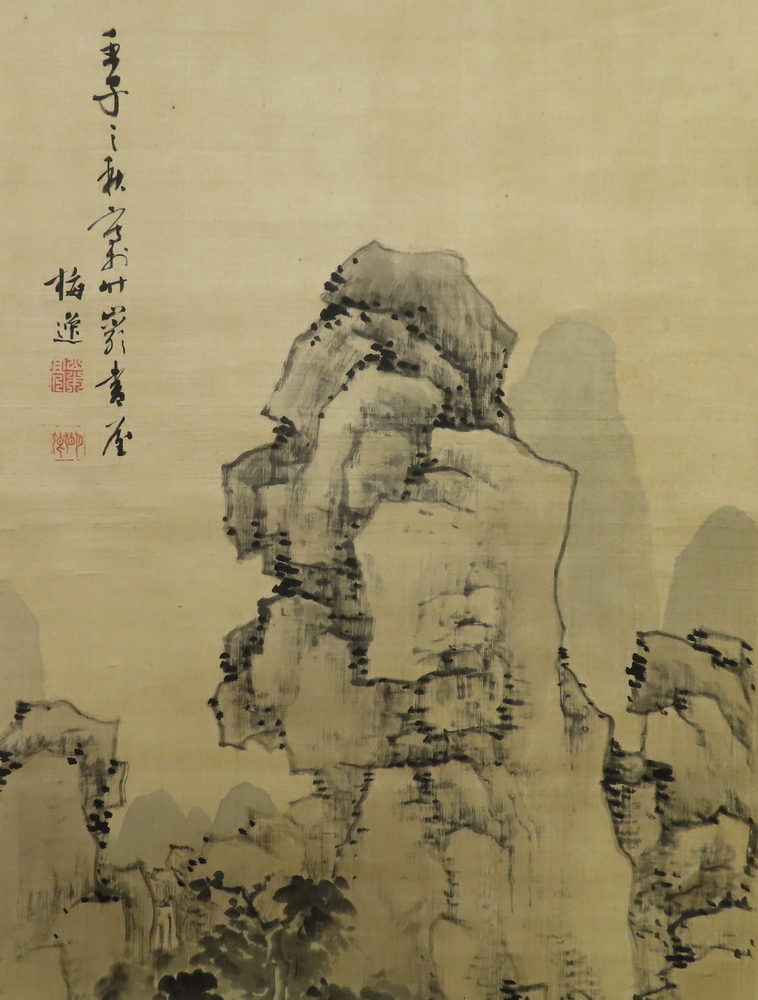 壬子之秋寫扵竹巖書屋
梅逸